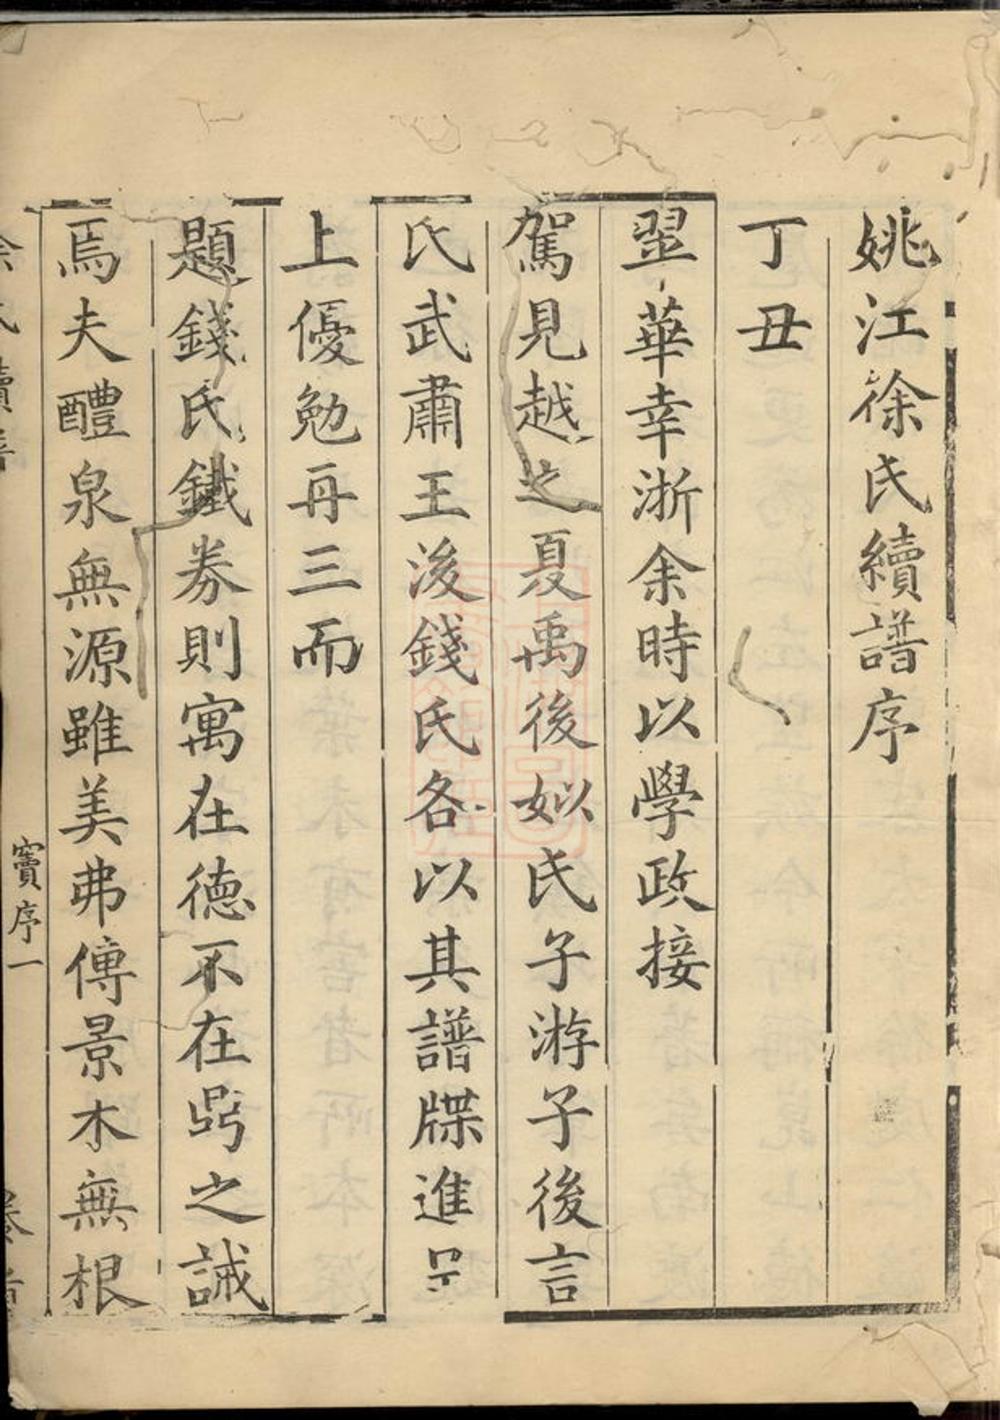 姚江徐氏續譜序
丁丑
翠華幸浙余時以學政接
駕見越之夏禹後姒氏子游子後言
氏武肅王後錢氏各以其譜牒進呈
上優勉再三而
題錢氏鐵券則寓在德不在鼎之誡
焉夫醴泉無源雖美弗傳景木無根
氏續譜
竇序一